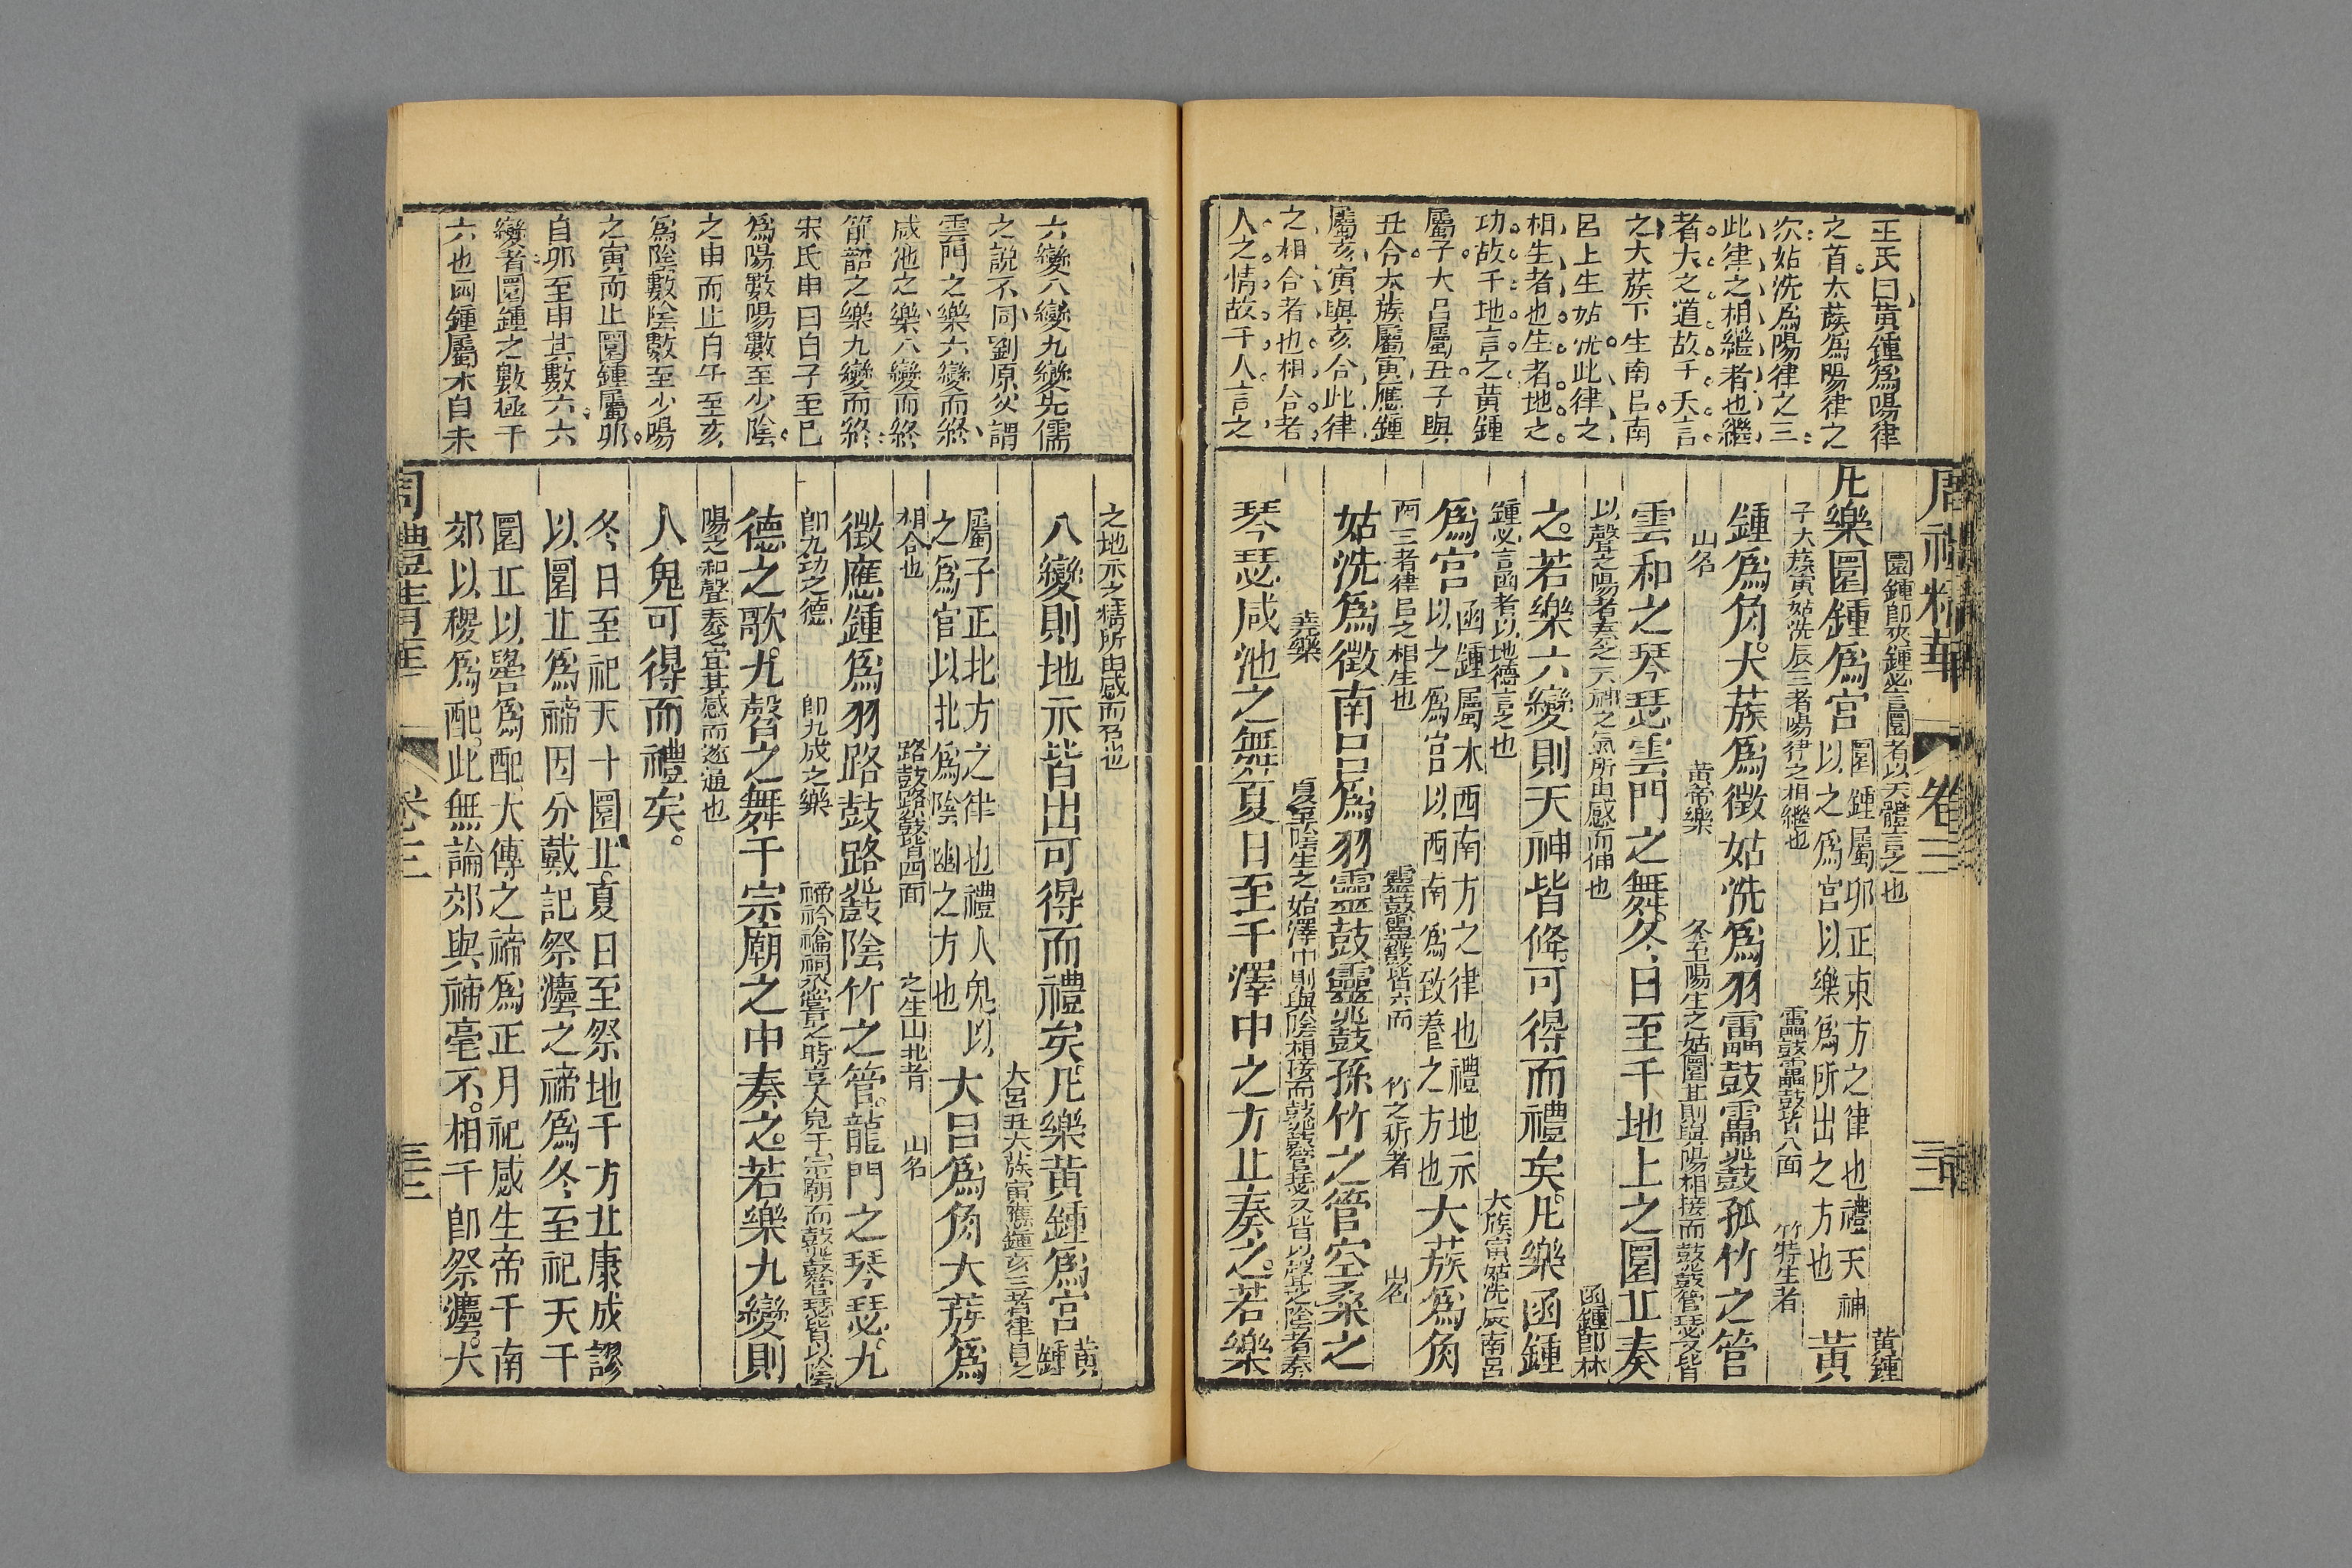 周禮精華
卷三
王氏曰黃鍾爲陽律
之首太蔟爲陽律之
次姑洗爲陽律之三
此律之相繼者也繼
者天之道故于天言
之大蔟下生南呂南
呂上生姑洗此律之
相生者也生者地之
功故于地言之黃鍾
屬子大呂屬丑子與
丑合大蔟屬寅應鍾
屬亥寅與亥合此律
之相合者也相合者
人之情故于人言之
圜鍾卽夾鍾必言圜者以天體言之也
黃鍾
凡樂圜鍾爲宮
圜鍾屬卯正東方之律也禮天神
以之爲宮以樂爲所出之方也
黃
子大蔟寅姑洗辰三者陽律之相繼也
靁鼓靁鼗皆八面
竹特生者
鍾爲角。大蔟爲徵姑洗爲羽靁鼓靁鼗孤竹之管
山名
黃帝樂
冬至陽生之始圜丘則與陽相接而鼓鼗管瑟又皆
雲和之琴瑟雲門之舞。冬日至于地上之圜丘奏
以聲之陽者奏之天神之氣所由感而伸也
函鍾卽林
之。若樂六變則天神皆降。可得而禮矣。凡樂函鍾
鍾必言函者以地德言之也
大蔟寅姑洗辰南呂
爲宮
函鍾屬未西南方之律也禮地示
以之爲宮以西南爲致養之方也
大蔟爲角
西三者律呂之相生也
靈鼓靈鼗皆六面
竹之枿者
山名
姑洗爲徵南呂爲羽靈鼓靈鼗孫竹之管空桑之
堯樂
夏至陰生之始澤中則與陰相接而鼓鼗管瑟又皆以聲之陰者奏
琴瑟咸池之舞夏日至于澤中之方丘奏之。若樂
六變八變九變先儒
之說不同劉原父謂
雲門之樂六變而終
咸池之樂八變而終
簫韶之樂九變而終
宋氏申曰自子至巳
爲陽數陽數至少陰
之申而止自午至亥
爲陰數陰數至少陽
之寅而止圜鍾屬卯
自卯至申其數六六
變者圜鍾之數極于
六也函鍾屬未自未
之地示之精所由感而召也
八變則地示皆出可得而禮矣。凡樂黃鍾爲宮
黃
鍾
大呂丑大蔟寅應鍾亥三者律呂之
屬子正北方之律也禮人鬼以
之爲宮以北爲陰幽之方也
大呂爲角大蔟爲
相合也
路鼓路鼗皆四面
之生山北者
山名
徵應鍾爲羽路鼓路鼗陰竹之管。龍門之琴瑟。九
卽九功之德
卽九成之樂
禘祫禴祠烝嘗之時享人鬼于宗廟而鼓鼗管瑟皆以陰
德之歌。九㲈之舞于宗廟之中奏之。若樂九變則
陽之和聲奏之宜其感而遂通也
人鬼可得而禮矣。
冬日至祀天于圜丘。夏日至祭地于方丘康成謬
以圜丘爲禘因分戴記祭灋之禘爲冬至祀天于
圜丘以嚳爲配大傳之禘爲正月祀感生帝于南
郊以稷爲配。此無論郊與禘毫不相干卽祭灋。大
周禮精華
卷三